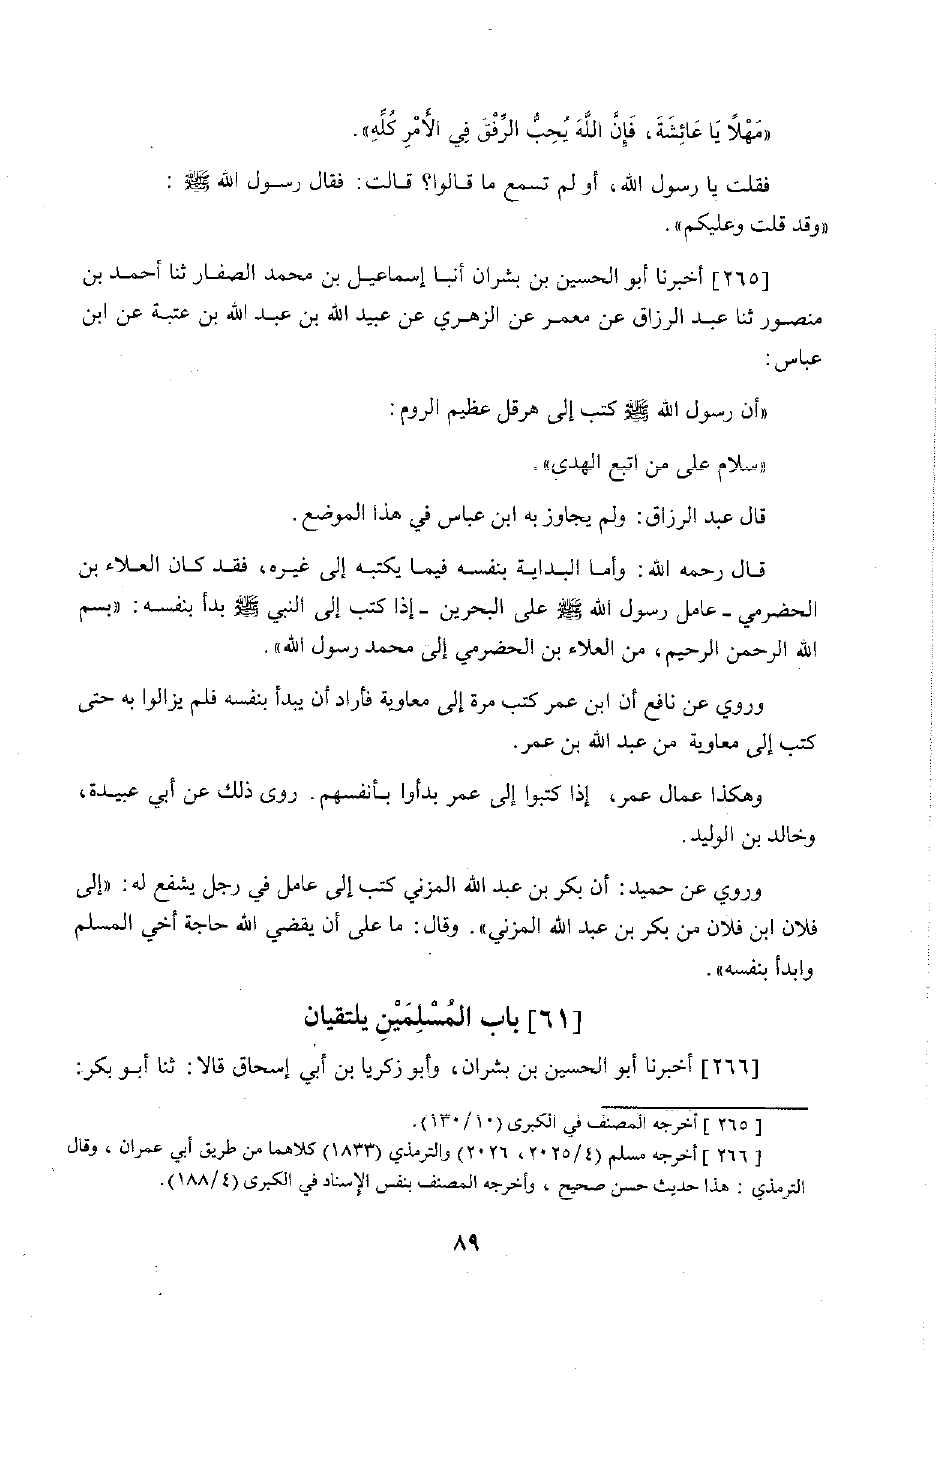 «مَهْلًا يَا عَائِشَةَ، فَإِنَّ اللَّهَ يُحِبُّ الرِّفْقَ فِي الأَمْرِ كُلِّهِ».
فقلت يا رسول الله، أو لم تسمع ما قالوا؟ قالت: فقال رسول الله ﷺ :
«وقد قلت وعليكم».
[٢٦٥] أخبرنا أبو الحسين بن بشران أنبا إسماعيل بن محمد الصفار ثنا أحمد بن
منصور ثنا عبد الرزاق عن معمر عن الزهري عن عبيد الله بن عبد الله بن عتبة عن ابن
عباس:
«أن رسول الله ﷺ كتب إلى هرقل عظيم الروم:
«سلام على من اتبع الهدى».
قال عبد الرزاق: ولم يجاوز به ابن عباس في هذا الموضع.
قال رحمه الله: وأما البداية بنفسه فيما يكتبه إلى غيره، فقد كان العلاء بن
الحضرمي - عامل رسول الله ﷺ على البحرين - إذا كتب إلى النبي ﷺ بدأ بنفسه: «بسم
الله الرحمن الرحيم، من العلاء بن الحضرمي إلى محمد رسول الله».
وروي عن نافع أن ابن عمر كتب مرة إلى معاوية فأراد أن يبدأ بنفسه فلم يزالوا به حتى
كتب إلى معاوية من عبد الله بن عمر.
وهكذا عمال عمر، إذا كتبوا إلى عمر بدأوا بأنفسهم. روى ذلك عن أبي عبيدة،
وخالد بن الوليد.
وروي عن حميد: أن بكر بن عبد الله المزني كتب إلى عامل في رجل يشفع له: «إلى
فلان ابن فلان من بكر بن عبد الله المزني». وقال: ما على أن يقضي الله حاجة أخي المسلم
وابدأ بنفسه».
[٦١] باب المُسْلِمَيْنِ يلتقيان
[٢٦٦] أخبرنا أبو الحسين بن بشران، وأبو زكريا بن أبي إسحاق قالا: ثنا أبو بكر:
[ ٢٦٥ ] أخرجه المصنف في الكبرى (١٣٠/١٠).
[ ٢٦٦ ] أخرجه مسلم (٢٠٢٥/٤، ٢٠٢٦) والترمذي (١٨٣٣) كلاهما من طريق أبي عمران ، وقال
الترمذي : هذا حديث حسن صحيح ، وأخرجه المصنف بنفس الإسناد في الكبرى (١٨٨/٤).
٨٩